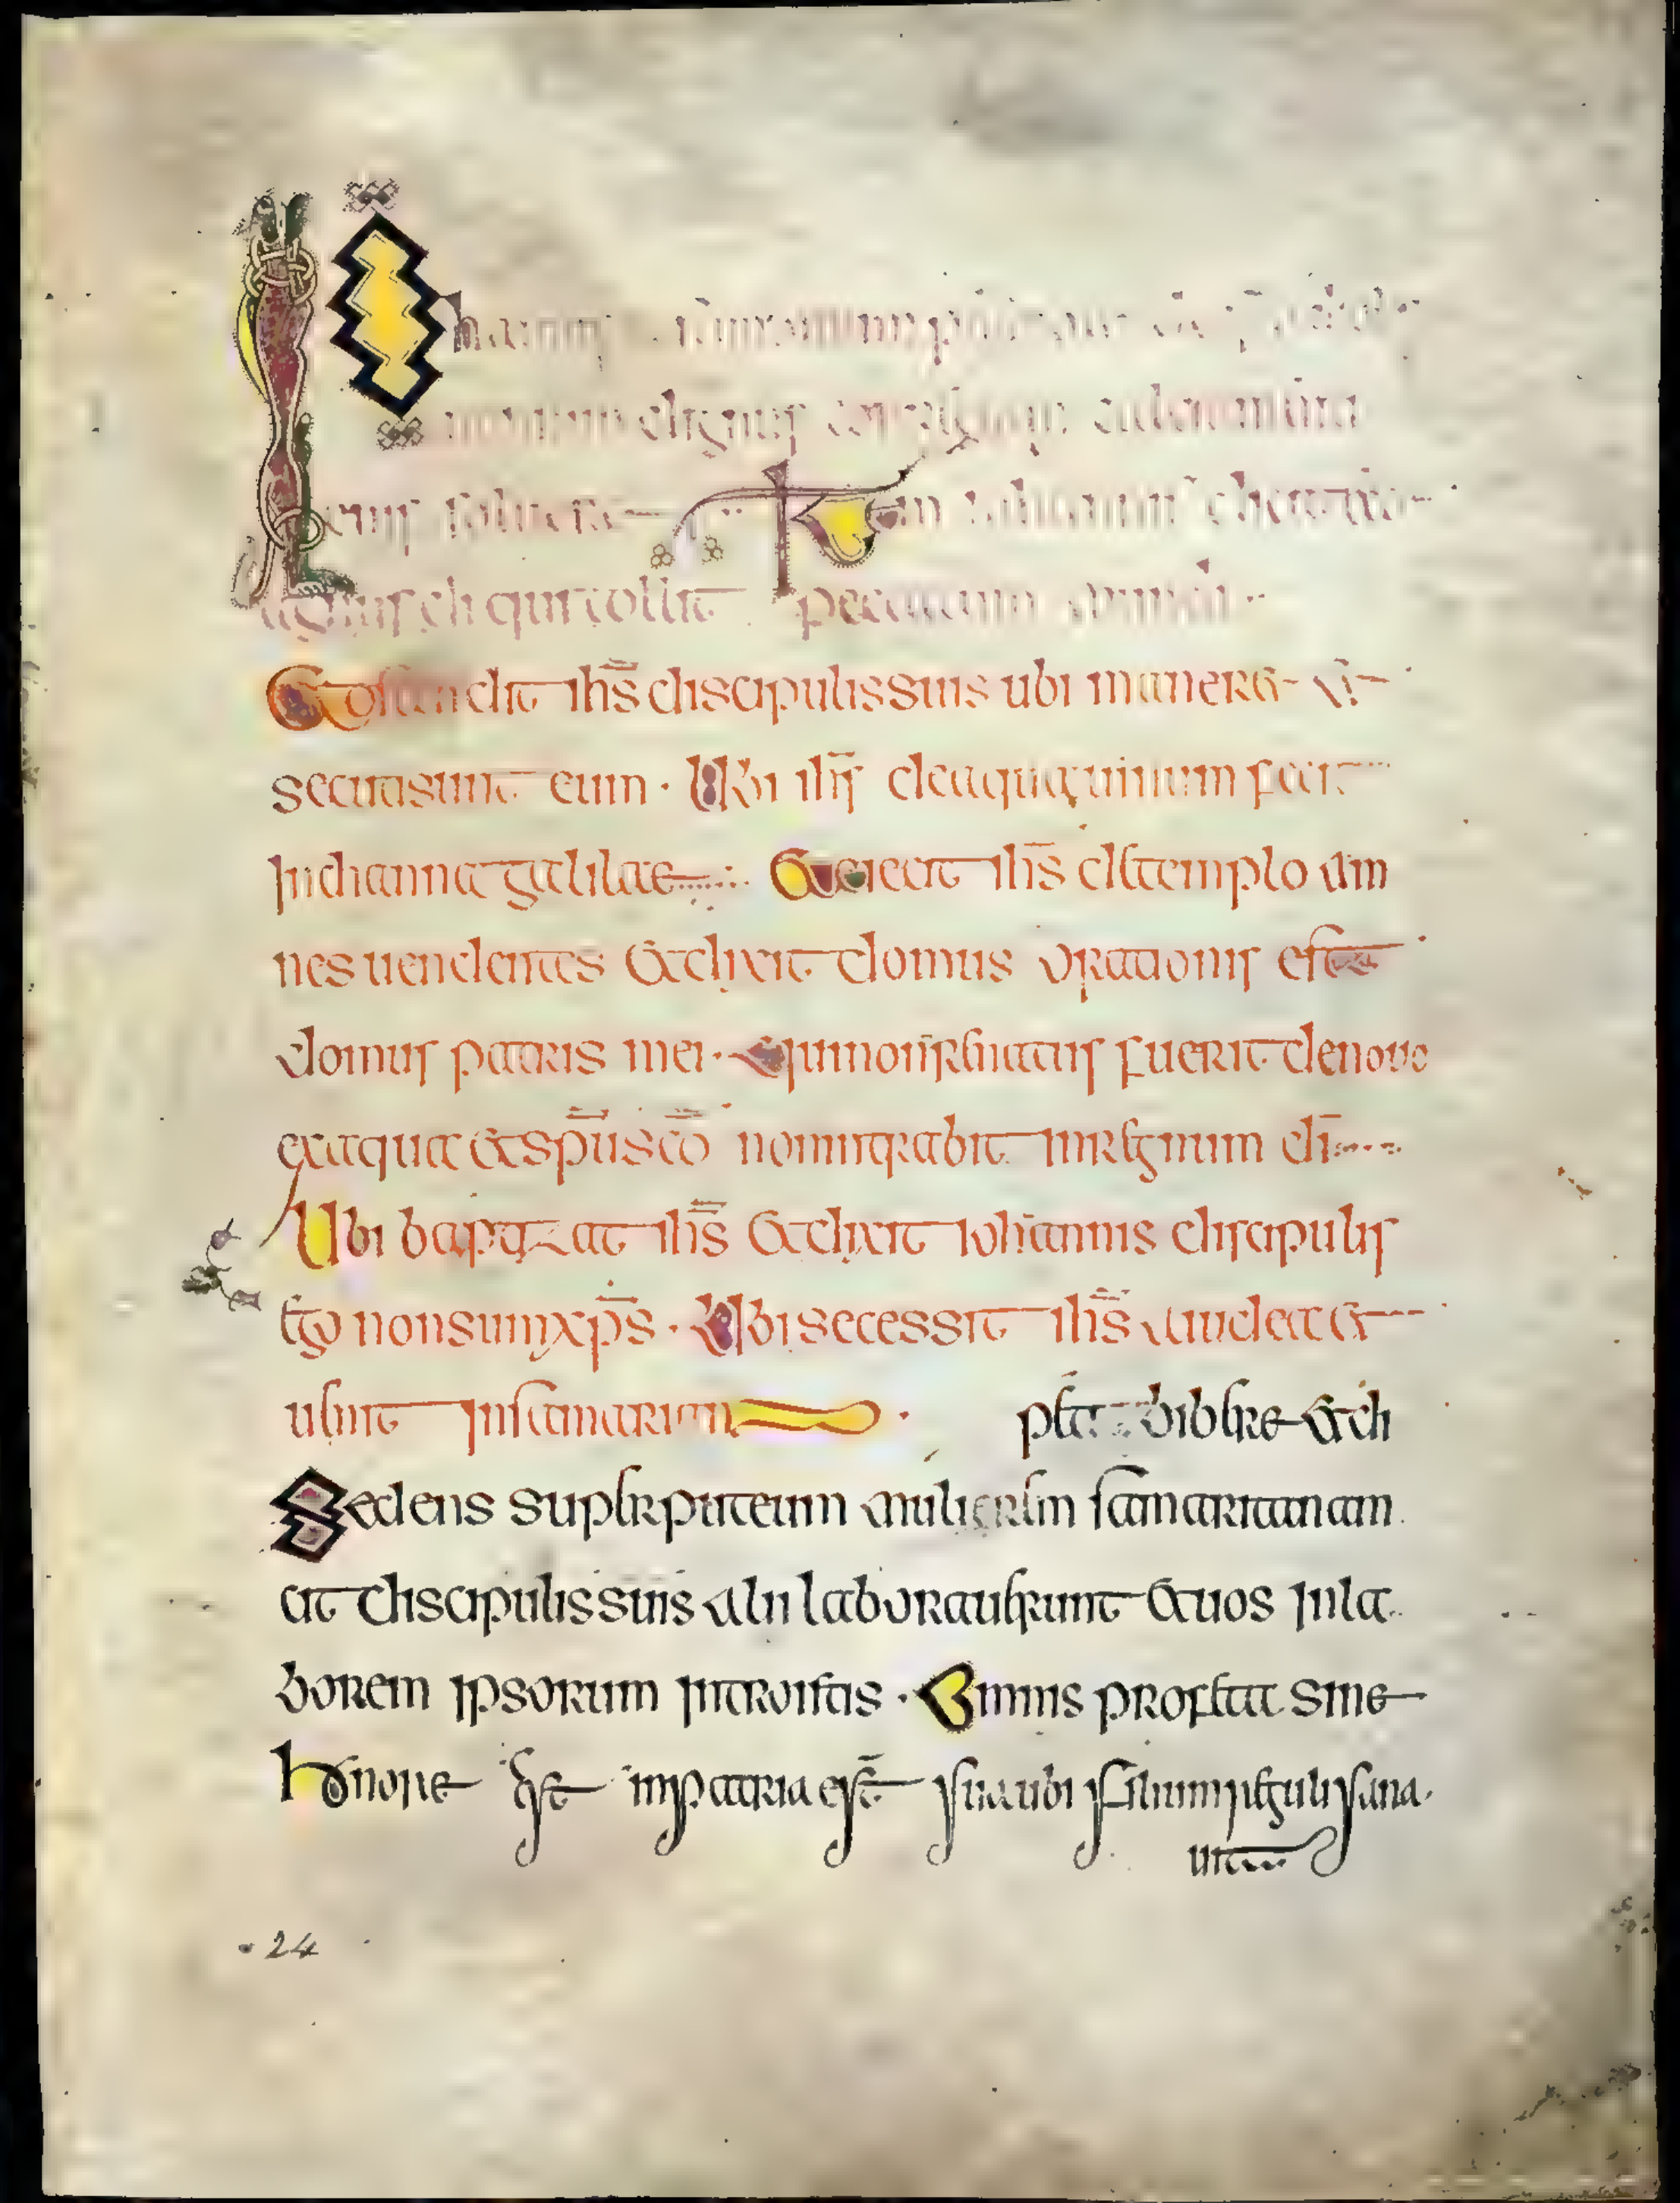 Iohannis
non sum dignus calciamenta
eius soluere Item iohannis
agnus di qui tollit peccatum mundi
Et ostendit ihs discipulis suis ubi maneret &
secuti sunt eum · Ubi ihs de aqua uinum fecit
In channa galilae Et eiecit ihs de templo om
nes uendentes & dixit domus orationis est
domus patris mei · qui non renatus fuerit denouo
ex aqua & spu sco non intrabit in regnum di
Ubi baptizat ihs & dixit iohannis discipulis
ego non sum xps · Ubi secessit ihs iudea &
uenit in samariam petit bibere & di
Sedens super puteum mulierem samaritanam
at discipulis suis alii laborauerunt & uos in la
borem ipsorum introistis · Omnis profeta sine
honore est in patria est sua ubi filium reguli sana
uit
24